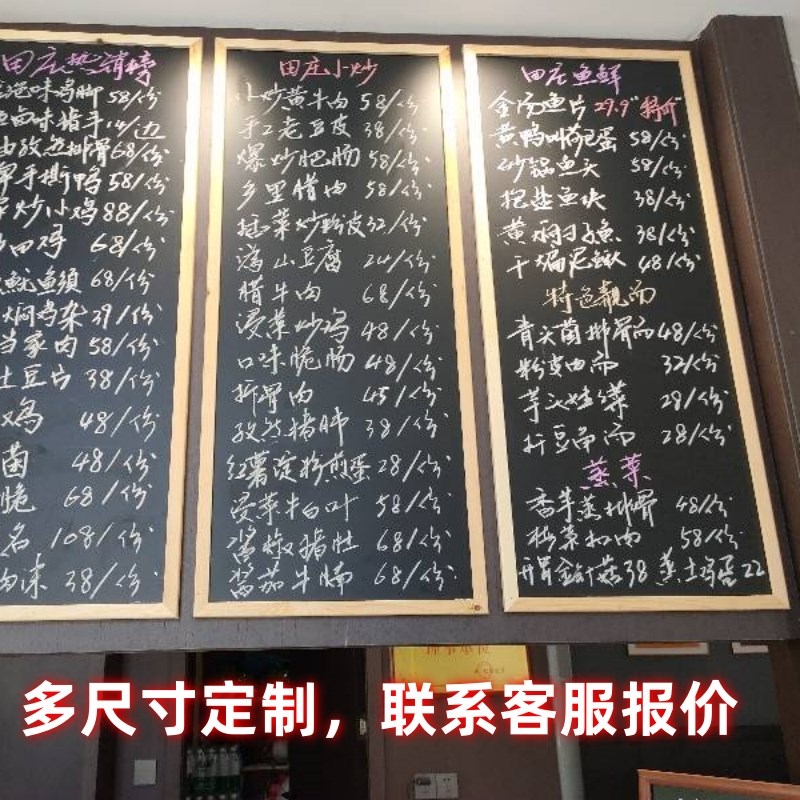 田庄热销榜
泡味鸡脚 58/份
卤味猪手 14/边
孜然排骨 68/份
手撕鸭 58/份
炒小鸡 88/份
田鸡 68/份
鱿鱼须 68/份
焖鸡杂 39/份
当家肉 58/份
土豆片 38/份
鸡 48/份
菌 48/份
脆 68/份
名 108/份
38/份
田庄小炒
小炒黄牛肉 58/份
手工老豆皮 38/份
爆炒肥肠 58/份
乡里腊肉 58/份
插菜炒粉皮 32/份
汤山豆腐 24/份
腊牛肉 68/份
浸菜炒鸡 48/份
口味脆肠 48/份
拆骨肉 45/份
孜然猪肺 38/份
红薯淀粉煎蛋 28/份
浸菜牛百叶 58/份
酱椒猪肚 68/份
番茄牛腩 68/份
田庄鱼鲜
金汤鱼片 29.9"特价"
黄鸭叫荷包蛋 58/份
砂锅鱼头 58/份
鱼块 38/份
黄焖刁子魚 38/份
干煸泥鳅 48/份
特色靓汤
青头菌排骨汤 48/份
粉皮肉汤 32/份
芋头娃娃菜 28/份
28/份
蒸菜
香芋蒸排骨 48/份
梅菜扣肉 58/份
开胃金针菇 38 蒸土鸡蛋 22
多尺寸定制，联系客服报价